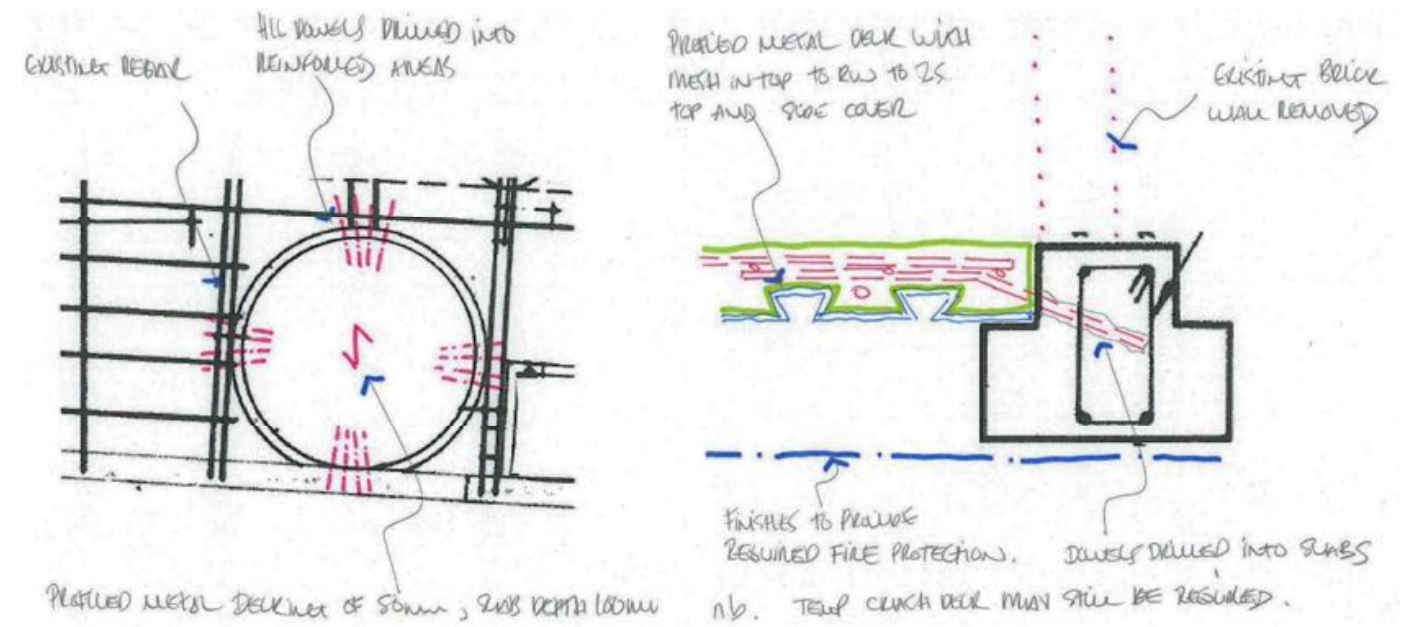 EXISTING REBAR
ALL DOWELS DRILLED INTO
REINFORCED AREAS
PROFILED METAL DECKING OF 50mm, SLAB DEPTH 100mm
PROFILED METAL DECK WITH
MESH IN TOP TO RUN TO 25
TOP AND SIDE COVER
EXISTING BRICK
WALL REMOVED
FINISHES TO PROVIDE
REQUIRED FIRE PROTECTION.
DOWELS DRILLED INTO SLABS
nb. TEMP CRASH DECK MAY STILL BE REQUIRED.